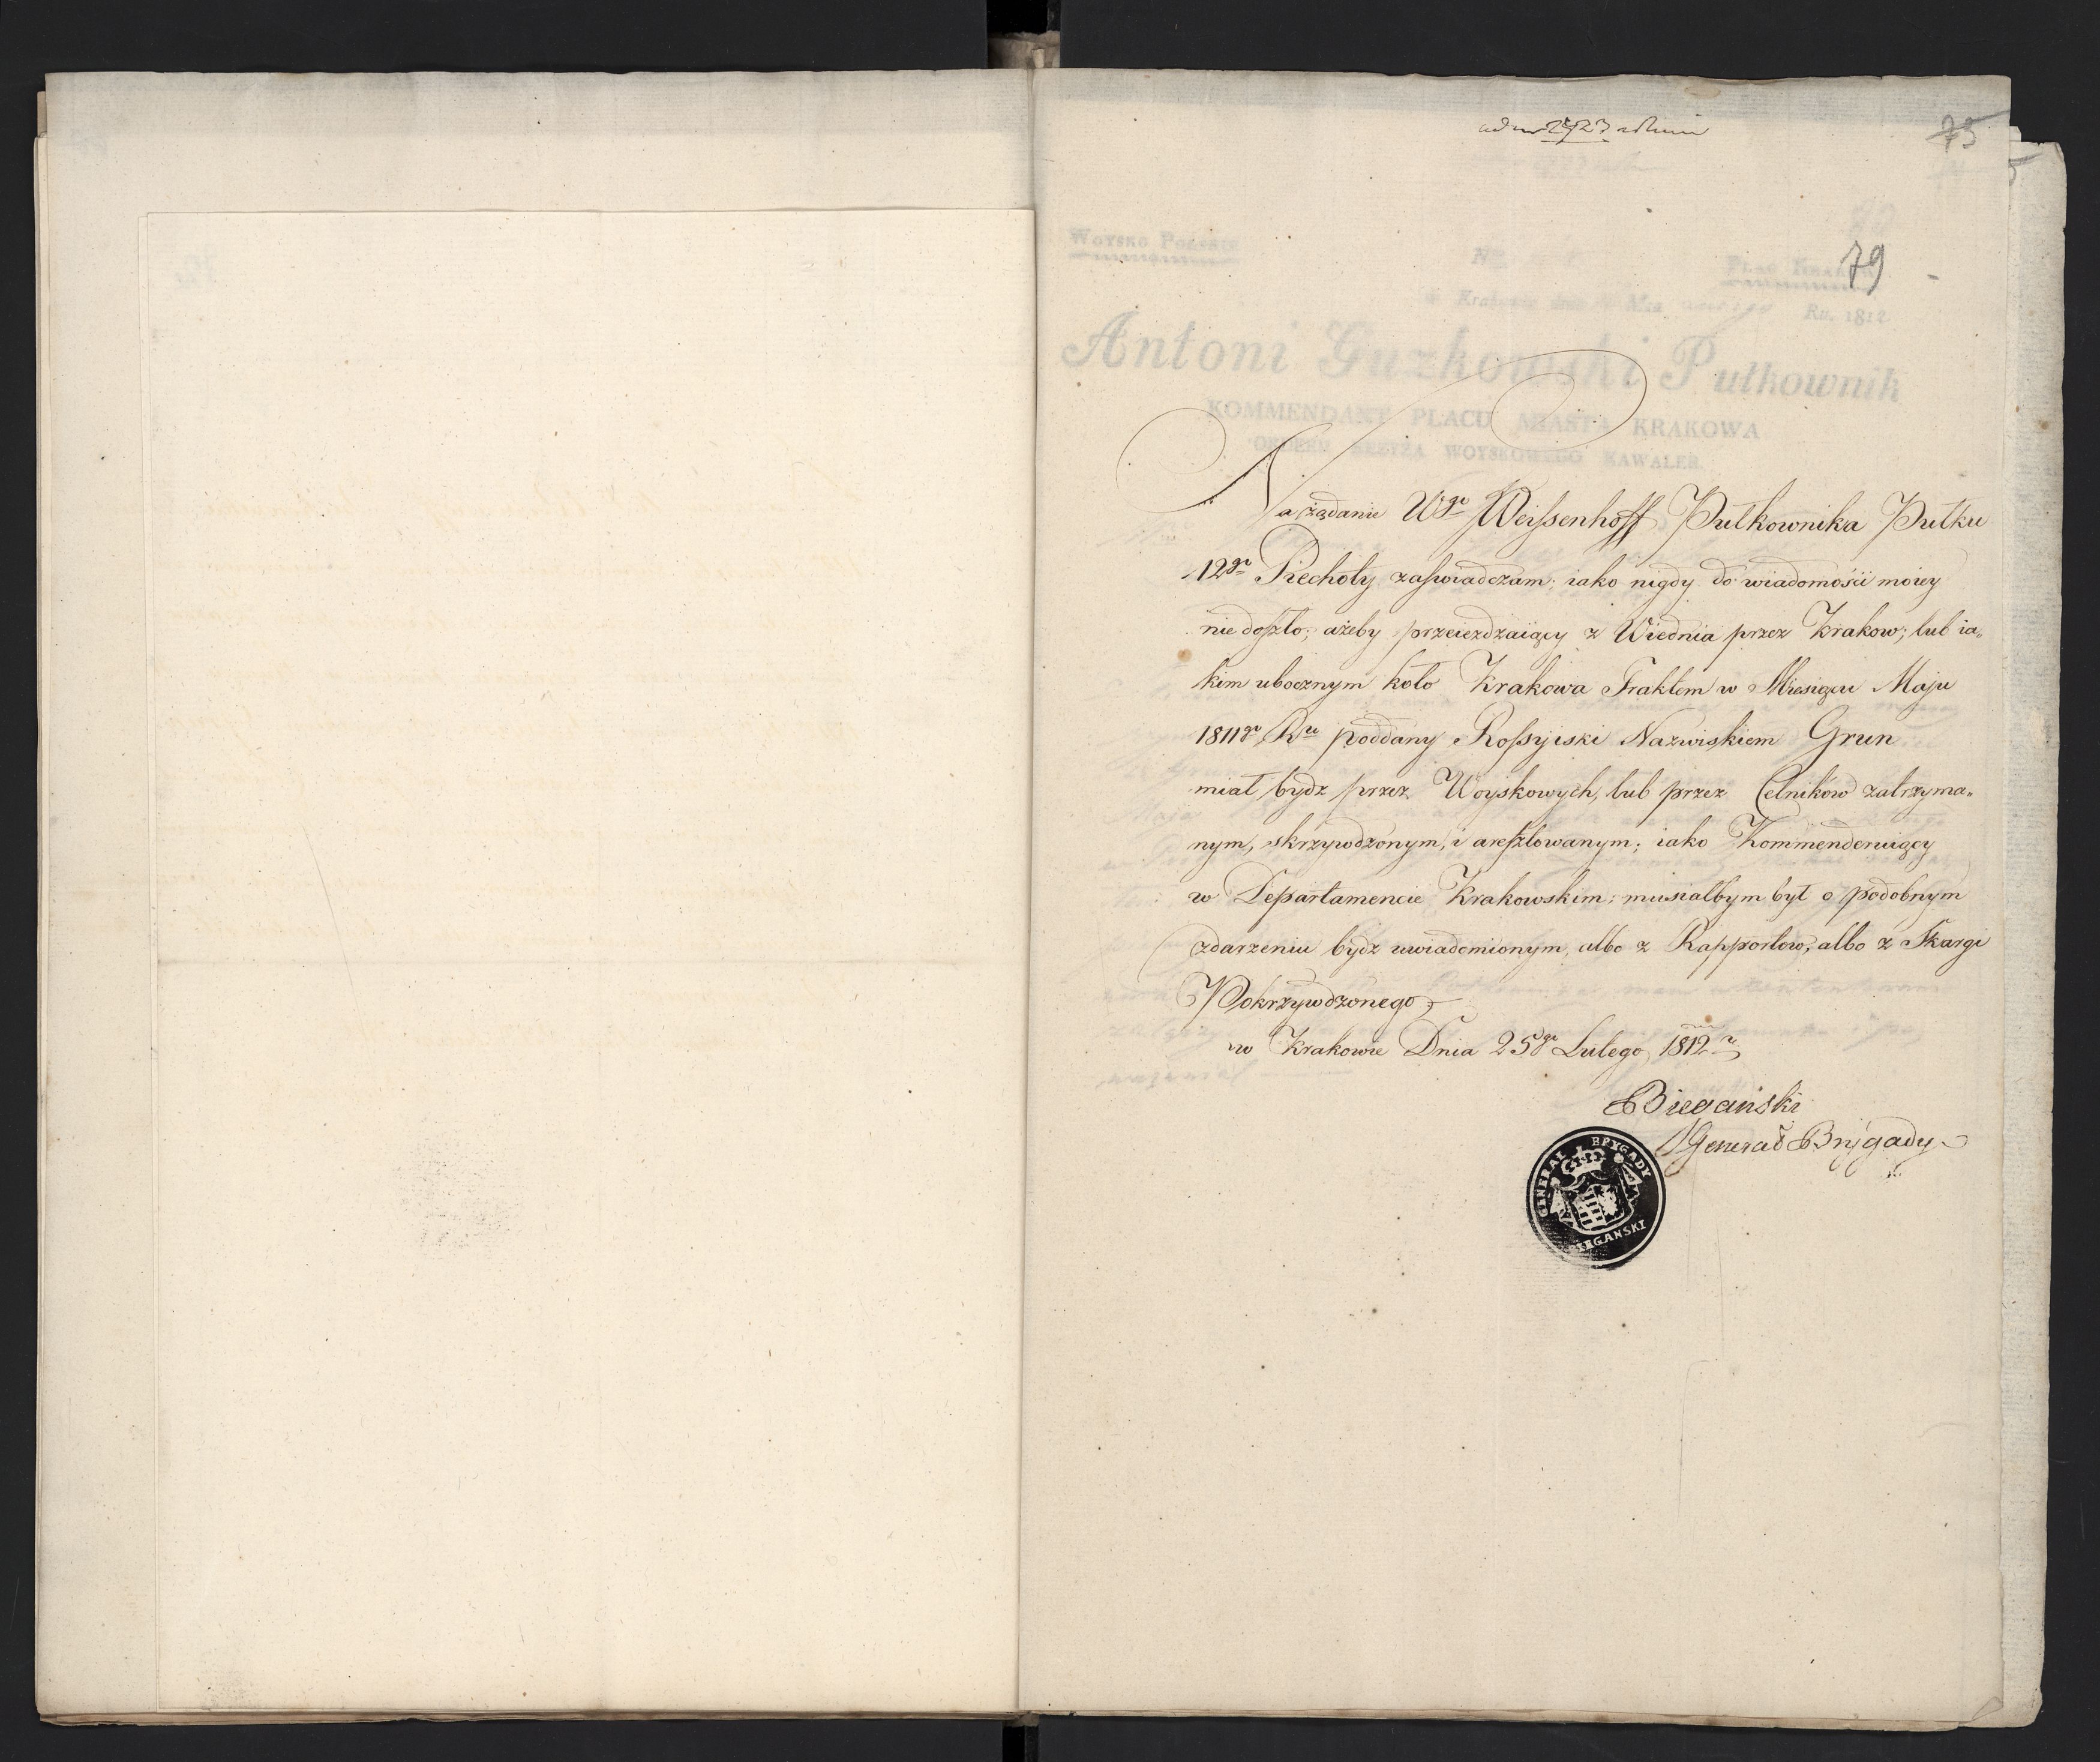 ad nr 2923
75
79
WOYSKO POLSKIE
Nro
PLAC KRAKÓW
w Krakowie dnia Mca Ru. 1812
Antoni Guzkowski Pułkownik
KOMMENDANT PLACU MIASTA KRAKOWA
ORDERU KRZYŻA WOYSKOWEGO KAWALER.
Na żądanie Wgo Weissenhoff Pułkownika Pułku
12go Piechoty zaswiadczam: iako nigdy do wiadomości moiey
nie doszło; ażeby przeiezdzaiący z Wiednia przez Krakow; lub ia„
kim ubocznym koło Krakowa Traktem w Miesiącu Maju
1811go Ru poddany Rossyiski Nazwiskiem Grun
miał bydz przez Woyskowych, lub przez Celników zatrzyma„
nym, skrzywdzonym, i aresztowanym; iako Kommenderuiący
w Departamencie Krakowskim: musiałbym był o podobnym
zdarzeniu bydz uwiadomionym, albo z Rapportow, albo z Skargi
Pokrzywdzonego,
w Krakowie Dnia 25go Lutego 1812r
Biegański
Generał Brygady
GENERAL BRYGADY
BIEGANSKI